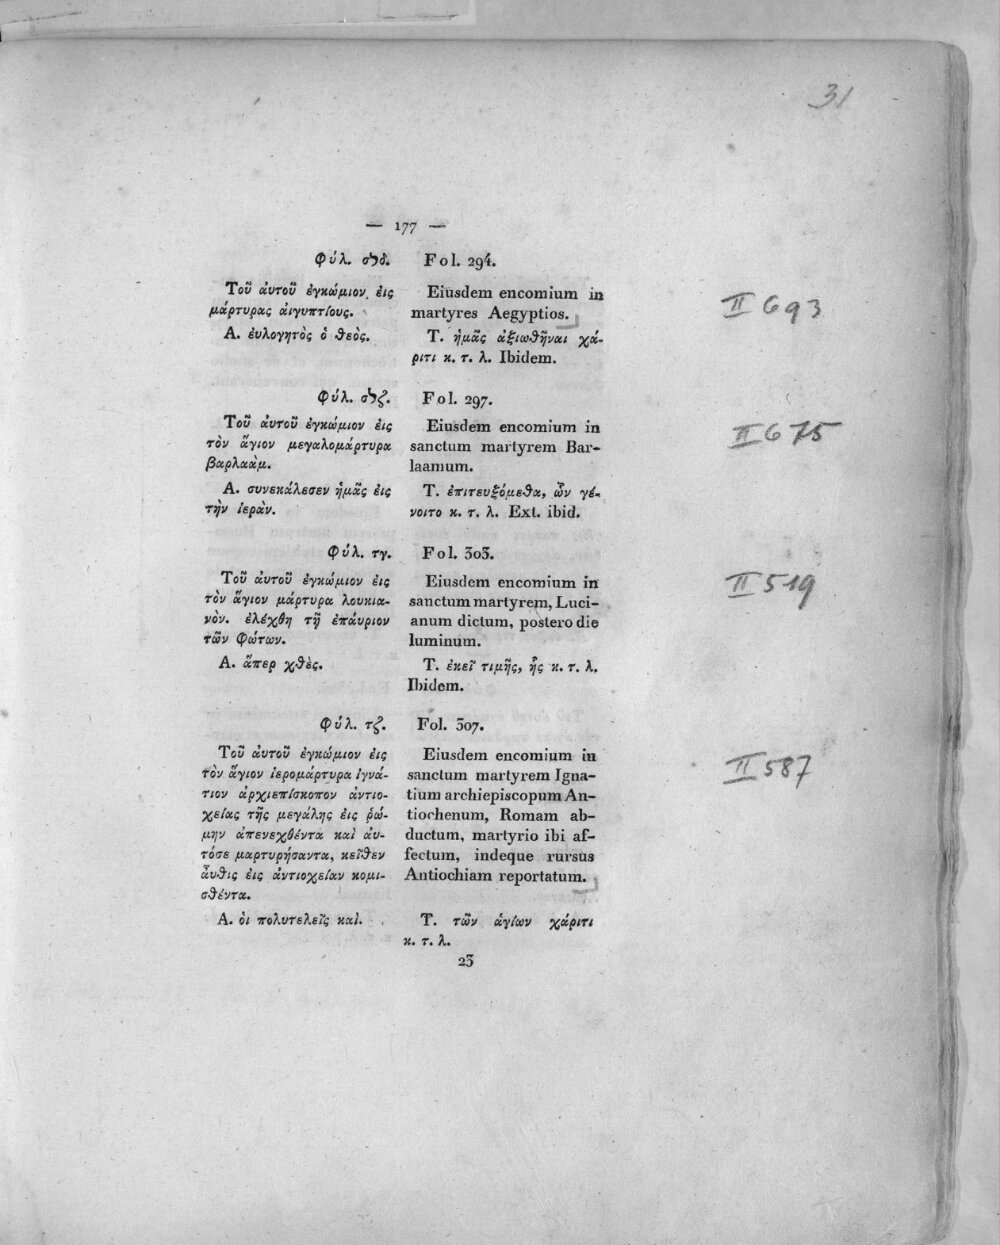 31
— 177 —
Φύλ. σϟδ.
Τοῦ ἀυτοῦ ἐγκώμιον εἰς
μάρτυρας ἀιγυπτίους.
Α. ἐυλογητὸς ὁ θεὸς.
Fol. 294.
Eiusdem encomium in
martyres Aegyptios.
Τ. ἡμᾶς ἀξιωθῆναι χά-
ριτι κ. τ. λ. Ibidem.
II 693
Φύλ. σϟζ.
Τοῦ ἀυτοῦ ἐγκώμιον εἰς
τὸν ἅγιον μεγαλομάρτυρα
βαρλαάμ.
Α. συνεκάλεσεν ἡμᾶς εἰς
τὴν ἱερὰν.
Fol. 297.
Eiusdem encomium in
sanctum martyrem Bar-
laamum.
Τ. ἐπιτευξόμεθα, ὧν γέ-
νοιτο κ. τ. λ. Ext. ibid.
II 675
Φύλ. τγ.
Τοῦ ἀυτοῦ ἐγκώμιον εἰς
τὸν ἅγιον μάρτυρα λουκια-
νὸν. ἐλέχθη τῇ ἐπάυριον
τῶν φώτων.
Α. ἅπερ χθὲς.
Fol. 303.
Eiusdem encomium in
sanctum martyrem, Luci-
anum dictum, postero die
luminum.
Τ. ἐκεῖ τιμῆς, ἧς κ. τ. λ.
Ibidem.
II 519
Φύλ. τζ.
Τοῦ ἀυτοῦ ἐγκώμιον εἰς
τὸν ἅγιον ἱερομάρτυρα ἰγνά-
τιον ἀρχιεπίσκοπον ἀντιο-
χείας τῆς μεγάλης εἰς ῥώ-
μην ἀπενεχθέντα καὶ ἀυ-
τόσε μαρτυρήσαντα, κεῖθεν
ἆυθις εἰς ἀντιοχείαν κομι-
σθέντα.
Α. ὁι πολυτελεῖς καὶ.
Fol. 307.
Eiusdem encomium in
sanctum martyrem Igna-
tium archiepiscopum An-
tiochenum, Romam ab-
ductum, martyrio ibi af-
fectum, indeque rursus
Antiochiam reportatum.
Τ. τῶν ἁγίων χάριτι
κ. τ. λ.
II 587
23